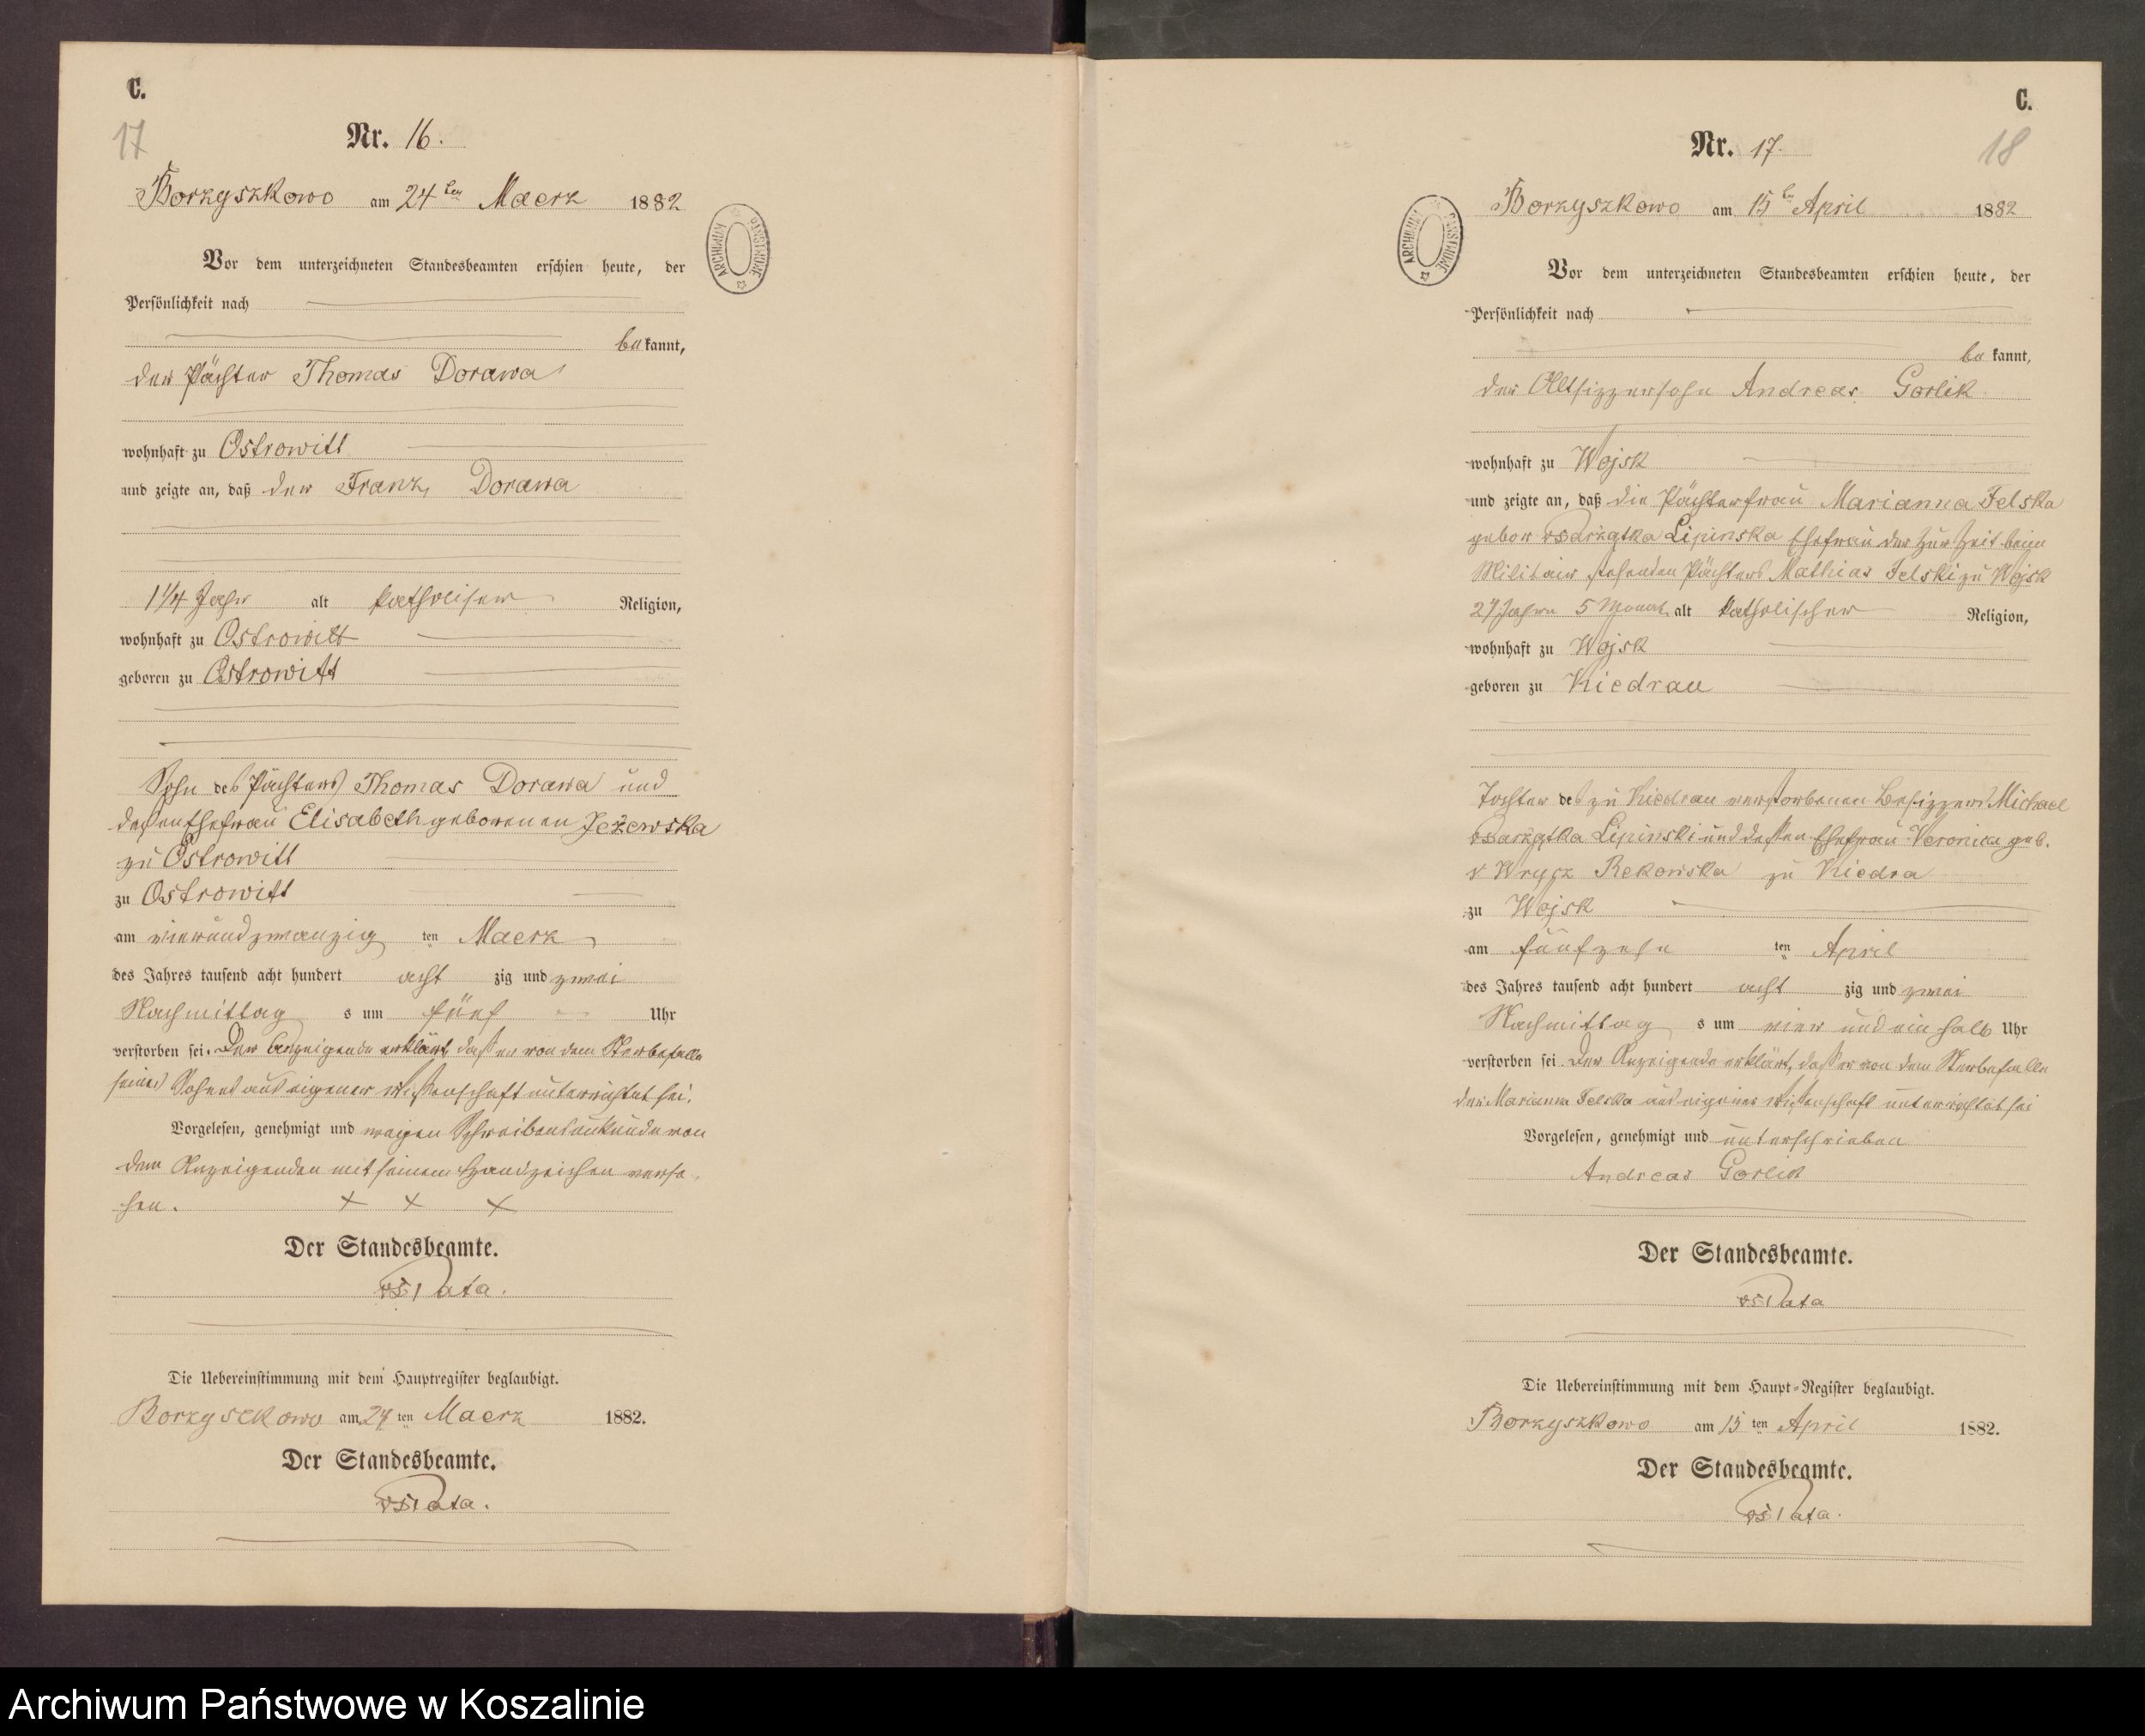 C.
17
Nr. 16.
Borzyszkowo am 24ten Maerz 1882
Vor dem unterzeichneten Standesbeamten erschien heute, der
Persönlichkeit nach
bekannt,
der Pächter Thomas Dorawa
wohnhaft zu Ostrowitt
und zeigte an, daß der Franz Dorawa
1 1/4 Jahr alt katholischer Religion,
wohnhaft zu Ostrowitt
geboren zu Ostrowitt
Sohn des Pächters Thomas Dorawa und
dessen Ehefrau Elisabeth geborenen Jeżewska
zu Ostrowitt
zu Ostrowitt
am vierundzwanzig ten Maerz
des Jahres tausend acht hundert acht zig und zwei
Nachmittag s um fünf Uhr
verstorben sei. Der Anzeigende erklärt, daß er von dem Sterbefalle
seines Sohnes aus eigener Wissenschaft unterrichtet sei.
Vorgelesen, genehmigt und wegen Schreibensunkunde von
dem Anzeigenden mit seinem Handzeichen verse-
hen. + + +
Der Standesbeamte.
Pata.
Die Uebereinstimmung mit dem Hauptregister beglaubigt.
Borzyszkowo am 24 ten Maerz 1882.
Der Standesbeamte.
Pata.
C.
18
Nr. 17.
Borzyszkowo am 15ten April 1882
Vor dem unterzeichneten Standesbeamten erschien heute, der
Persönlichkeit nach
bekannt,
der Altsitzersohn Andreas Gorlik
wohnhaft zu Wojsk
und zeigte an, daß die Pächterfrau Marianna Felska
gebor Lipinska Ehefrau des zur Zeit beim
Militair stehenden Pächters Mathias Felski zu Wojsk
27 Jahre 5 Monat alt katholischer Religion,
wohnhaft zu Wojsk
geboren zu Kiedrau
Tochter des zu Kiedrau verstorbenen Besitzers Michael
Lipinski und dessen Ehefrau Veronica geb.
v Wrycz Rekowska zu Kiedra
zu Wojsk
am fünfzehn ten April
des Jahres tausend acht hundert acht zig und zwei
Nachmittag s um vier und ein halb Uhr
verstorben sei. Der Anzeigende erklärt, daß er von dem Sterbefalle
der Marianna Felska aus eigener Wissenschaft unterrichtet sei
Vorgelesen, genehmigt und unterschrieben
Andreas Gorlik
Der Standesbeamte.
Pata
Die Uebereinstimmung mit dem Haupt-Register beglaubigt.
Borzyszkowo am 15 ten April 1882.
Der Standesbeamte.
Pata.
ARCHIWUM PAŃSTWOWE
ARCHIWUM PAŃSTWOWE
Archiwum Państwowe w Koszalinie